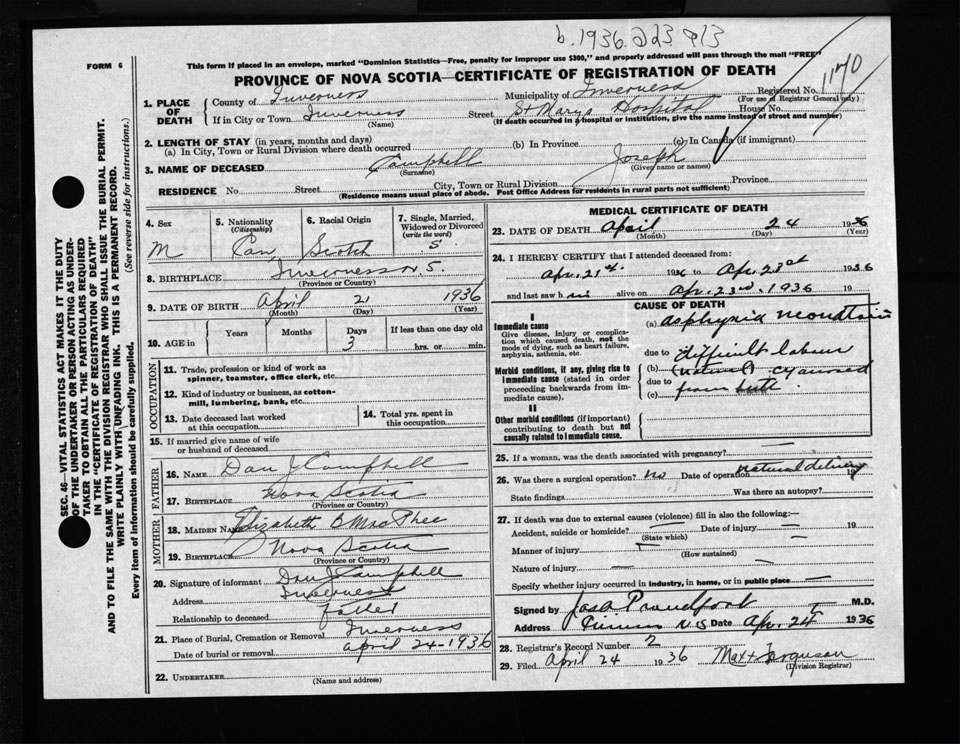 b. 1936. 223 913
FORM 6
This form if placed in an envelope, marked "Dominion Statistics—Free, penalty for improper use $300," and properly addressed will pass through the mail "FREE"
PROVINCE OF NOVA SCOTIA—CERTIFICATE OF REGISTRATION OF DEATH
1170
1. PLACE OF DEATH
County of Inverness Municipality of Inverness Registered No.
(For use of Registrar General only)
If in City or Town Inverness Street St Marys Hospital House No.
(Name) (If death occurred in a hospital or institution, give the name instead of street and number)
2. LENGTH OF STAY (in years, months and days)
(a) In City, Town or Rural Division where death occurred (b) In Province (c) In Canada (if immigrant)
3. NAME OF DECEASED Campbell Joseph
(Surname) (Given name or names)
RESIDENCE No Street City, Town or Rural Division Province
(Residence means usual place of abode. Post Office Address for residents in rural parts not sufficient)
4. Sex M
5. Nationality (Citizenship) Can
6. Racial Origin Scotch
7. Single, Married, Widowed or Divorced (write the word) S
8. BIRTHPLACE Inverness N S.
(Province or Country)
9. DATE OF BIRTH April 21 1936
(Month) (Day) (Year)
10. AGE in Years Months Days 3 If less than one day old hrs. or min.
OCCUPATION
11. Trade, profession or kind of work as spinner, teamster, office clerk, etc.
12. Kind of industry or business, as cotton-mill, lumbering, bank, etc.
13. Date deceased last worked at this occupation
14. Total yrs. spent in this occupation
15. If married give name of wife or husband of deceased
FATHER
16. NAME Dan J Campbell
17. BIRTHPLACE Nova Scotia
(Province or Country)
MOTHER
18. MAIDEN NAME Elizabeth B MacPhee
19. BIRTHPLACE Nova Scotia
(Province or Country)
20. Signature of informant Dan J Campbell
Address Inverness
Relationship to deceased father
21. Place of Burial, Cremation or Removal Inverness
Date of burial or removal April 24-1936
22. UNDERTAKER
(Name and address)
MEDICAL CERTIFICATE OF DEATH
23. DATE OF DEATH April 24 1936
(Month) (Day) (Year)
24. I HEREBY CERTIFY that I attended deceased from:
Apr. 21st. 1936 to Apr. 23rd 1936
and last saw h im alive on Apr. 23rd. 1936
CAUSE OF DEATH
I
Immediate cause
Give disease, injury or complication which caused death, not the mode of dying, such as heart failure, asphyxia, asthenia, etc.
(a) asphyxia
due to difficult labour
Morbid conditions, if any, giving rise to immediate cause (stated in order proceeding backwards from immediate cause).
(b) (natural) cyanosed
due to
(c) from birth
II
Other morbid conditions (if important) contributing to death but not causally related to immediate cause.
25. If a woman, was the death associated with pregnancy?
26. Was there a surgical operation? no Date of operation natural delivery 19
State findings Was there an autopsy?
27. If death was due to external causes (violence) fill in also the following:—
Accident, suicide or homicide? Date of injury 19
(State which)
Manner of injury
(How sustained)
Nature of injury
Specify whether injury occurred in industry, in home, or in public place
Signed by Jas A Proudfoot M.D.
Address N S Date Apr. 24 1936
28. Registrar's Record Number 2
29. Filed April 24 1936 Ferguson
(Division Registrar)
SEC. 46—VITAL STATISTICS ACT MAKES IT THE DUTY
OF THE UNDERTAKER OR PERSON ACTING AS UNDER-
TAKER TO OBTAIN ALL THE PARTICULARS REQUIRED
IN THE "CERTIFICATE OF REGISTRATION OF DEATH"
AND TO FILE THE SAME WITH THE DIVISION REGISTRAR WHO SHALL ISSUE THE BURIAL PERMIT.
WRITE PLAINLY WITH UNFADING INK. THIS IS A PERMANENT RECORD.
Every item of information should be carefully supplied. (See reverse side for instructions.)